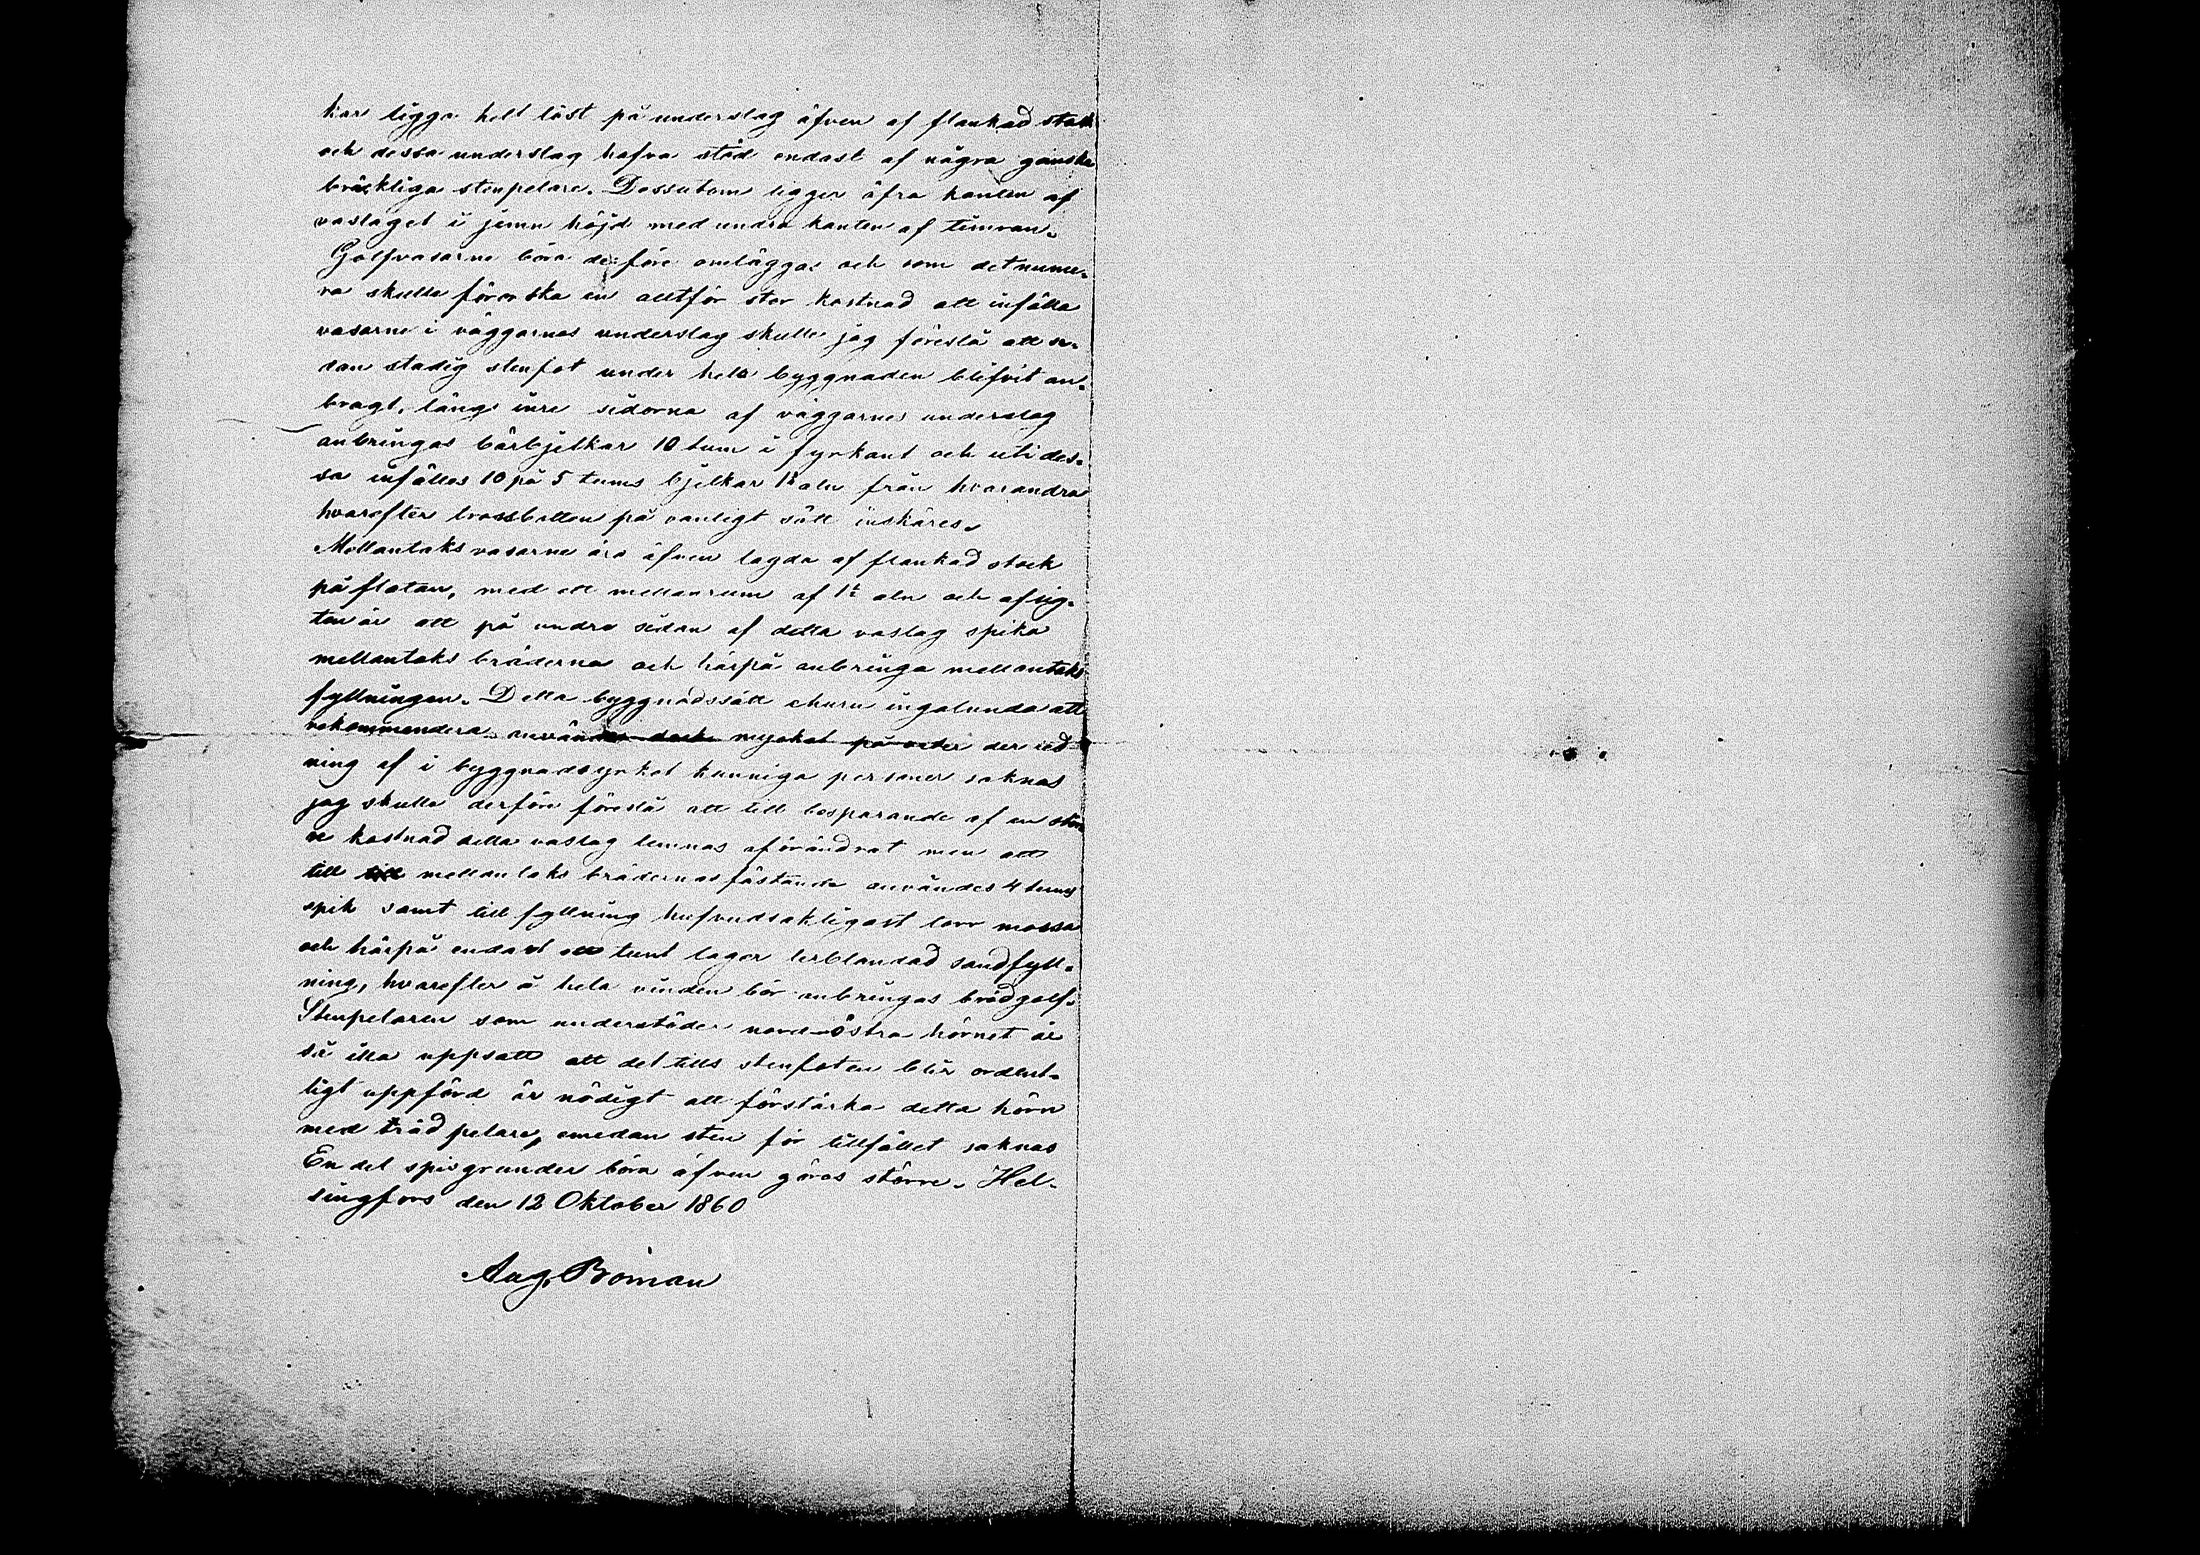 har ligga helt löst på underslag äfven af flankad stock
och dessa underslag hafva stöd endast af några ganska
bräckliga stenpelare. Dessutom ligger öfra kanten af
vaslaget i jemn höjd med undra kanten af timran.
Golfvasarne böra derföre omläggas och som det nume-
ra skulle förorsaka en alltför stor kostnad att infälla
vasarne i väggarnas underslag skulle jag föreslå att se-
dan stadig stenfot under hela byggnaden blifvit an-
bragt, längs inre sidorna af väggarnes underslag
anbringas bärbjelkar 10 tum i fyrkant och uti des-
sa infälles 10 på 5 tums bjelkar 1½ aln från hvarandra
hvarefter trossbotten på vanligt sätt inskäres.
Mellantaksvasarne äro äfven lagda af flankad stock
på flatan, med ett mellanrum af 1½ aln och afsig-
ten är att på undra sidan af detta vaslag spika
mellantaks bräderna och härpå anbringa mellantaks
fyllningen. Detta byggnadssätt ehuru ingalunda att
rekommendera användes dock mycket på orter der led-
ning af i byggnadsyrket kunniga personer saknas
jag skulle derföre föreslå att till besparande af en stör-
re kostnad detta vaslag lemnas oförändrat men att
till mellantaks brädernas fästande användes 4 tums
spik samt till fyllning hufvudsakligast torr mossa
och härpå endast ett tunt lager lerblandad sandfyll-
ning, hvarefter å hela vinden bör anbringas brädgolf.
Stenpelaren som understöder nord-östra hörnet är
så illa uppsatt att det tills stenfoten blir ordent-
ligt uppförd är nödigt att förstärka detta hörn
med träd pelare, emedan sten för tillfället saknas
En del spisgrunder böra äfven göras större. Hel-
singfors den 12 Oktober 1860
Aug. Boman